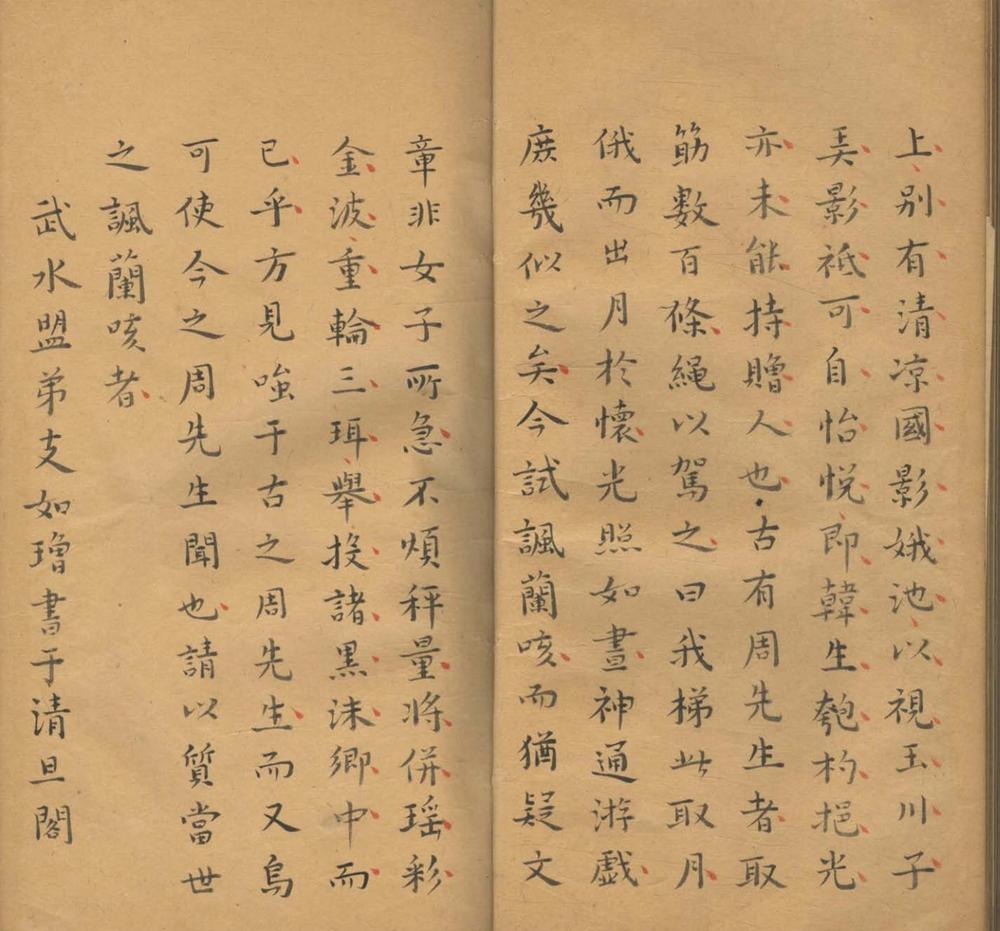 上別有清凉國影娥池以視玉川子
弄影祗可自怡悅即韓生匏杓挹光
亦未能持贈人也古有周先生者取
筯數百條繩以駕之曰我梯此取月
俄而出月於懷光照如晝神通游戲
庶幾似之矣今試諷蘭咳而猶疑文
章非女子所急不煩秤量將併瑶彩
金波重輪三珥舉投諸黑沫鄉中而
已乎方見嗤于古之周先生而又烏
可使今之周先生聞也請以質當世
之諷蘭咳者
武水盟弟支如璔書于清旦閣